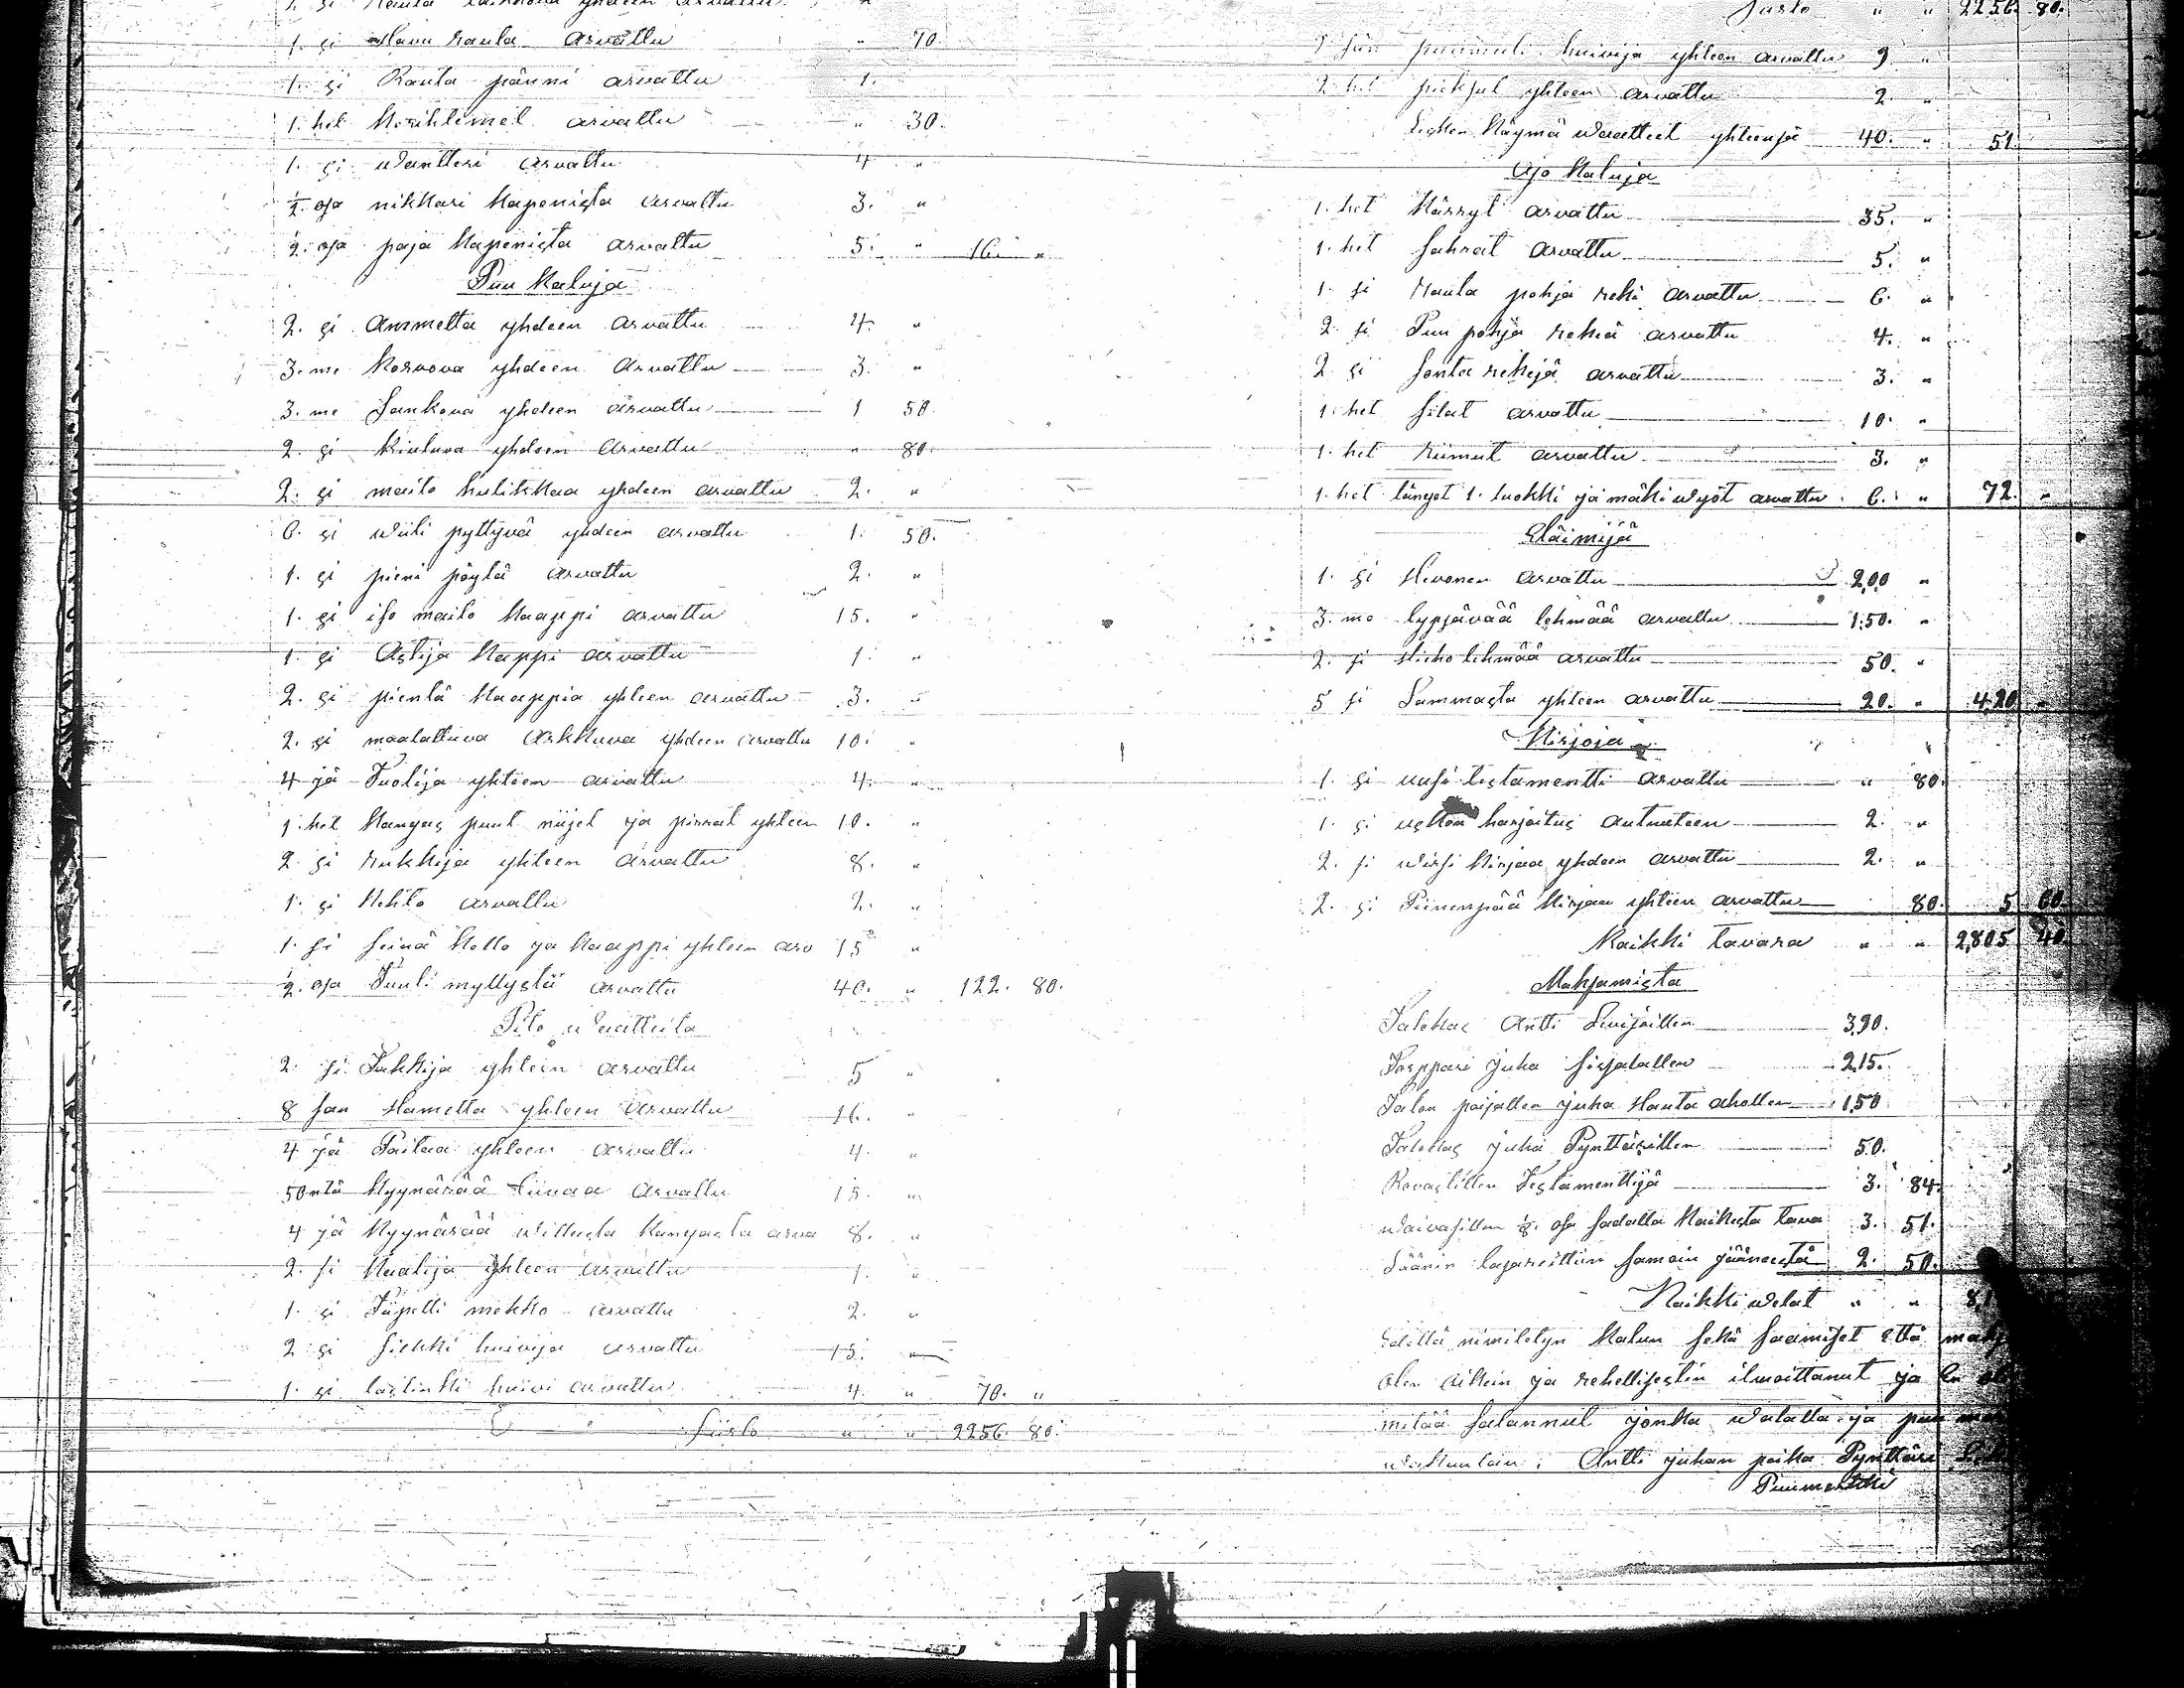 1. si Hanu rauta arvattu " 70.
1. si Rauta pänni arvattu 1.
1. het Kerihtimet arvattu " 30.
1. si wantteri arvattu 4 "
1/2. osa nikkari kapenista arvattu 3. "
1/2. osa paja kapenista arvattu 5. " 16. "
Puu kaluja
2. si Ammetta yhdeen arvattu 4. "
3. me korvova yhdeen arvattu 3. "
3. me sankova yhdeen arvattu 1 50
2. si kiuluva yhdeen arvattu " 80.
2. si maito hulikkaa yhdeen arvattu 2. "
6. si wiili pyttyvä yhdeen arvattu 1. 50.
1. si pieni pöytä arvattu 2. "
1. si iso maito kaappi arvattu 15. "
1. si Astija kappi arvattu 1. "
2. si pientä kaappia yhteen arvattu 3. "
2. si maalattuva arkkuva yhdeen arvattu 10. "
4 jä Tuolija yhteen arvattu 4. "
1. het kangas puut niijet ja pirrat yhteen 10. "
2. si rukkija yhteen arvattu 8. "
1. si kehto arvattu 2. "
1. si seinä kello ja kaappi yhteen arv 15 "
1/2. osa Tuuli myllystä arvattu 40. " 122. 80.
Pito waatteita
2. si Takkija yhteen arvattu 5 "
8 san Hametta yhteen arvattu 16. "
4 jä Paitaa yhteen arvattu 4. "
50ntä kyynärää liinaa arvattu 15. "
4 jä kyynärää willasta kangasta arva 8. "
2. si kaalija yhteen arvattu 1. "
1. si mekko arvattu 2. "
2 si silkki huivija arvattu 15. "
1. si huivi arvattu 4. " 70. "
Siirto " " 2256 80.
Siirto " " 2256. 80.
huivija yhteen arvattu 9 "
2 het yhteen arvattu 2. "
käymä waatteet yhteensä 40. " 51
Ajo kaluja
1. het kärryt arvattu 35. "
1. het sahrat arvattu 5. "
1. si rauta pohja reki arvattu 6. "
2. si Puu pohja rekiä arvattu 4. "
2 si sonta rekijä arvattu 3. "
1. het silat arvattu 10. "
1. het riimut arvattu 3. "
1. het länget 1. luokki ja mäki wyöt arvattu 6. " 72. "
Eläimijä
1. si Hevonen arvattu 200 "
3. me lypsävää lehmää arvattu 150. "
2. si Hieho lehmää arvattu 50. "
5 si Lammasta yhteen arvattu 20. " 420 "
Kirjoja
1. si uusi testamentti arvattu " 80.
1. si uskon harjoitus autuuteen 2. "
2. si wirsi kirjaa yhdeen arvattu 2. "
2. si Pienempää kirjaa yhteen arvattu 80. 5 60
Kaikki tavara " " 2,805 40
Maksamista
Talokas Antti 390.
Torppari Juha 215.
Talon pojallen Juha Hauta ahollen 150
Talokas Juha Pynttärillen 50.
Rovastillen Testamenttijä 3. 84.
waivasillen 1/8. osa sadalta kaikesta tava 3. 51.
Läänin lasarettiin samoin jääneestä 2. 50.
Kaikki welat " "
Edellä nimitetyn kalun sekä saamiset että
olen oikein ja rehellisestin ilmoittanut ja en
mitää salannut jonka walalla ja
wakuutan: Antti Juhan poika Pynttäri
Puumerkki